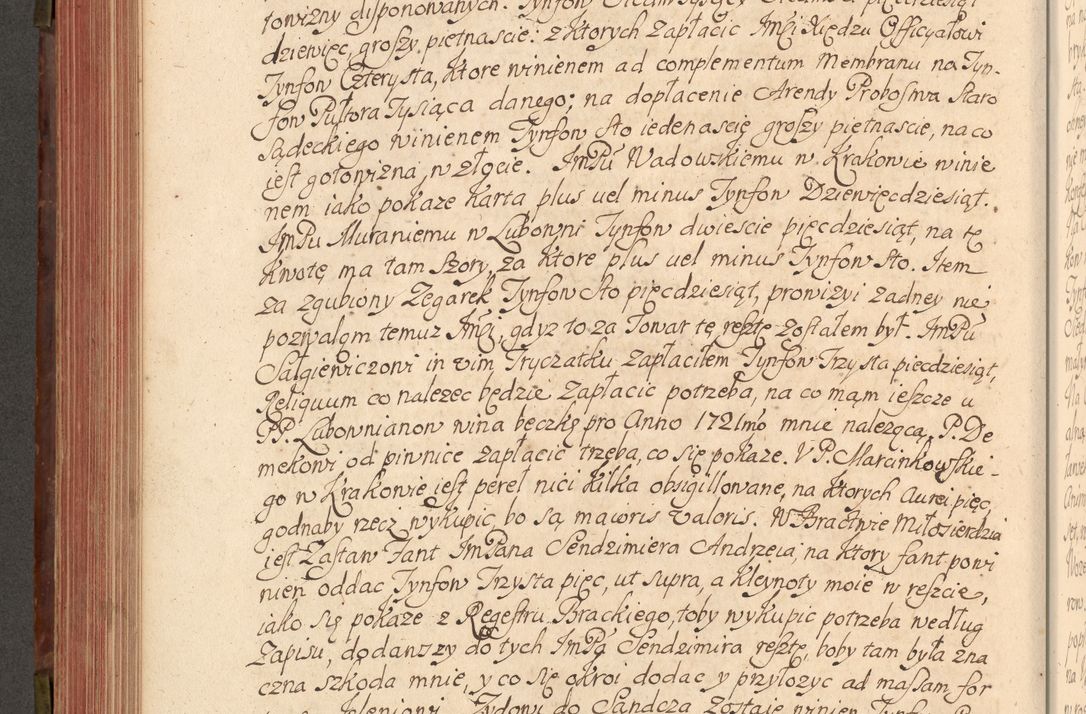 towizny disponowanych. Tynfow
dziewięc, groszy, piętnascie: z ktorych zapłacic JmCi Xiędzu Officyałowi
Tynfow Czterysta, ktore winienem ad complementum Membranu na Tyn-
fow Pułtora Tysiąca danego; na dopłacenie Arendy Probostwa Staro
sądeckiego winienem Tynfow sto iedenascię groszy piętnascie, na co
iest gotowizna w złocie. JmPu Wadowskiemu w Krakowie winie
nem iako pokaze Karta plus vel minus Tynfow Dziewięcdziesiąt.
JmPu Muraniemu w Lubowni Tynfow dwiescie pięcdziesiąt, na tę
Kwotę ma tam Szory, za ktore plus vel minus Tynfow sto. Item
za zgubiony Zegarek Tynfow sto pięcdziesiąt, prowizyi zadney nie
pozwalam temuz JmCi, gdyz to za Towar tę resztę zostałem był. JmPu
Sałgiewiczowi in vim Tryczatku zapłaciłem Tynfow Trzysta piecdziesiąt,
Reliquum co nalezec będzie zapłacic potrzeba, na co mam ieszcze u
PP. Labownianow wina beczkę pro Anno 1721mo mnie nalezącą. P. De
mekowi od piwnice zapłacic trzeba, co się pokaze. V P. Marcinkowskie-
go w Krakowie iest pereł nici kilka obsigillowane, na ktorych Aurei pięc,
godnaby rzecz wykupic, bo są maioris valoris. W Bractwie Miłosierdzia
iest Zastaw Fant JmPana Sendzimiera Andrzeia, na ktory fant powi
nien oddac Tynfow Trzysta pięc, ut supra, a kleynoty moie w reszcie,
iako się pokaze z Regestru Brackiego, toby wykupic potrzeba według
Zapisu, dodanszy do tych JmPa Sendzimira resztę, boby tam była zna
czna szkoda mnie, y co się okroi dodac y przylozyc ad massam for
Zydowi do Sandcza zostaie winien Tynfow